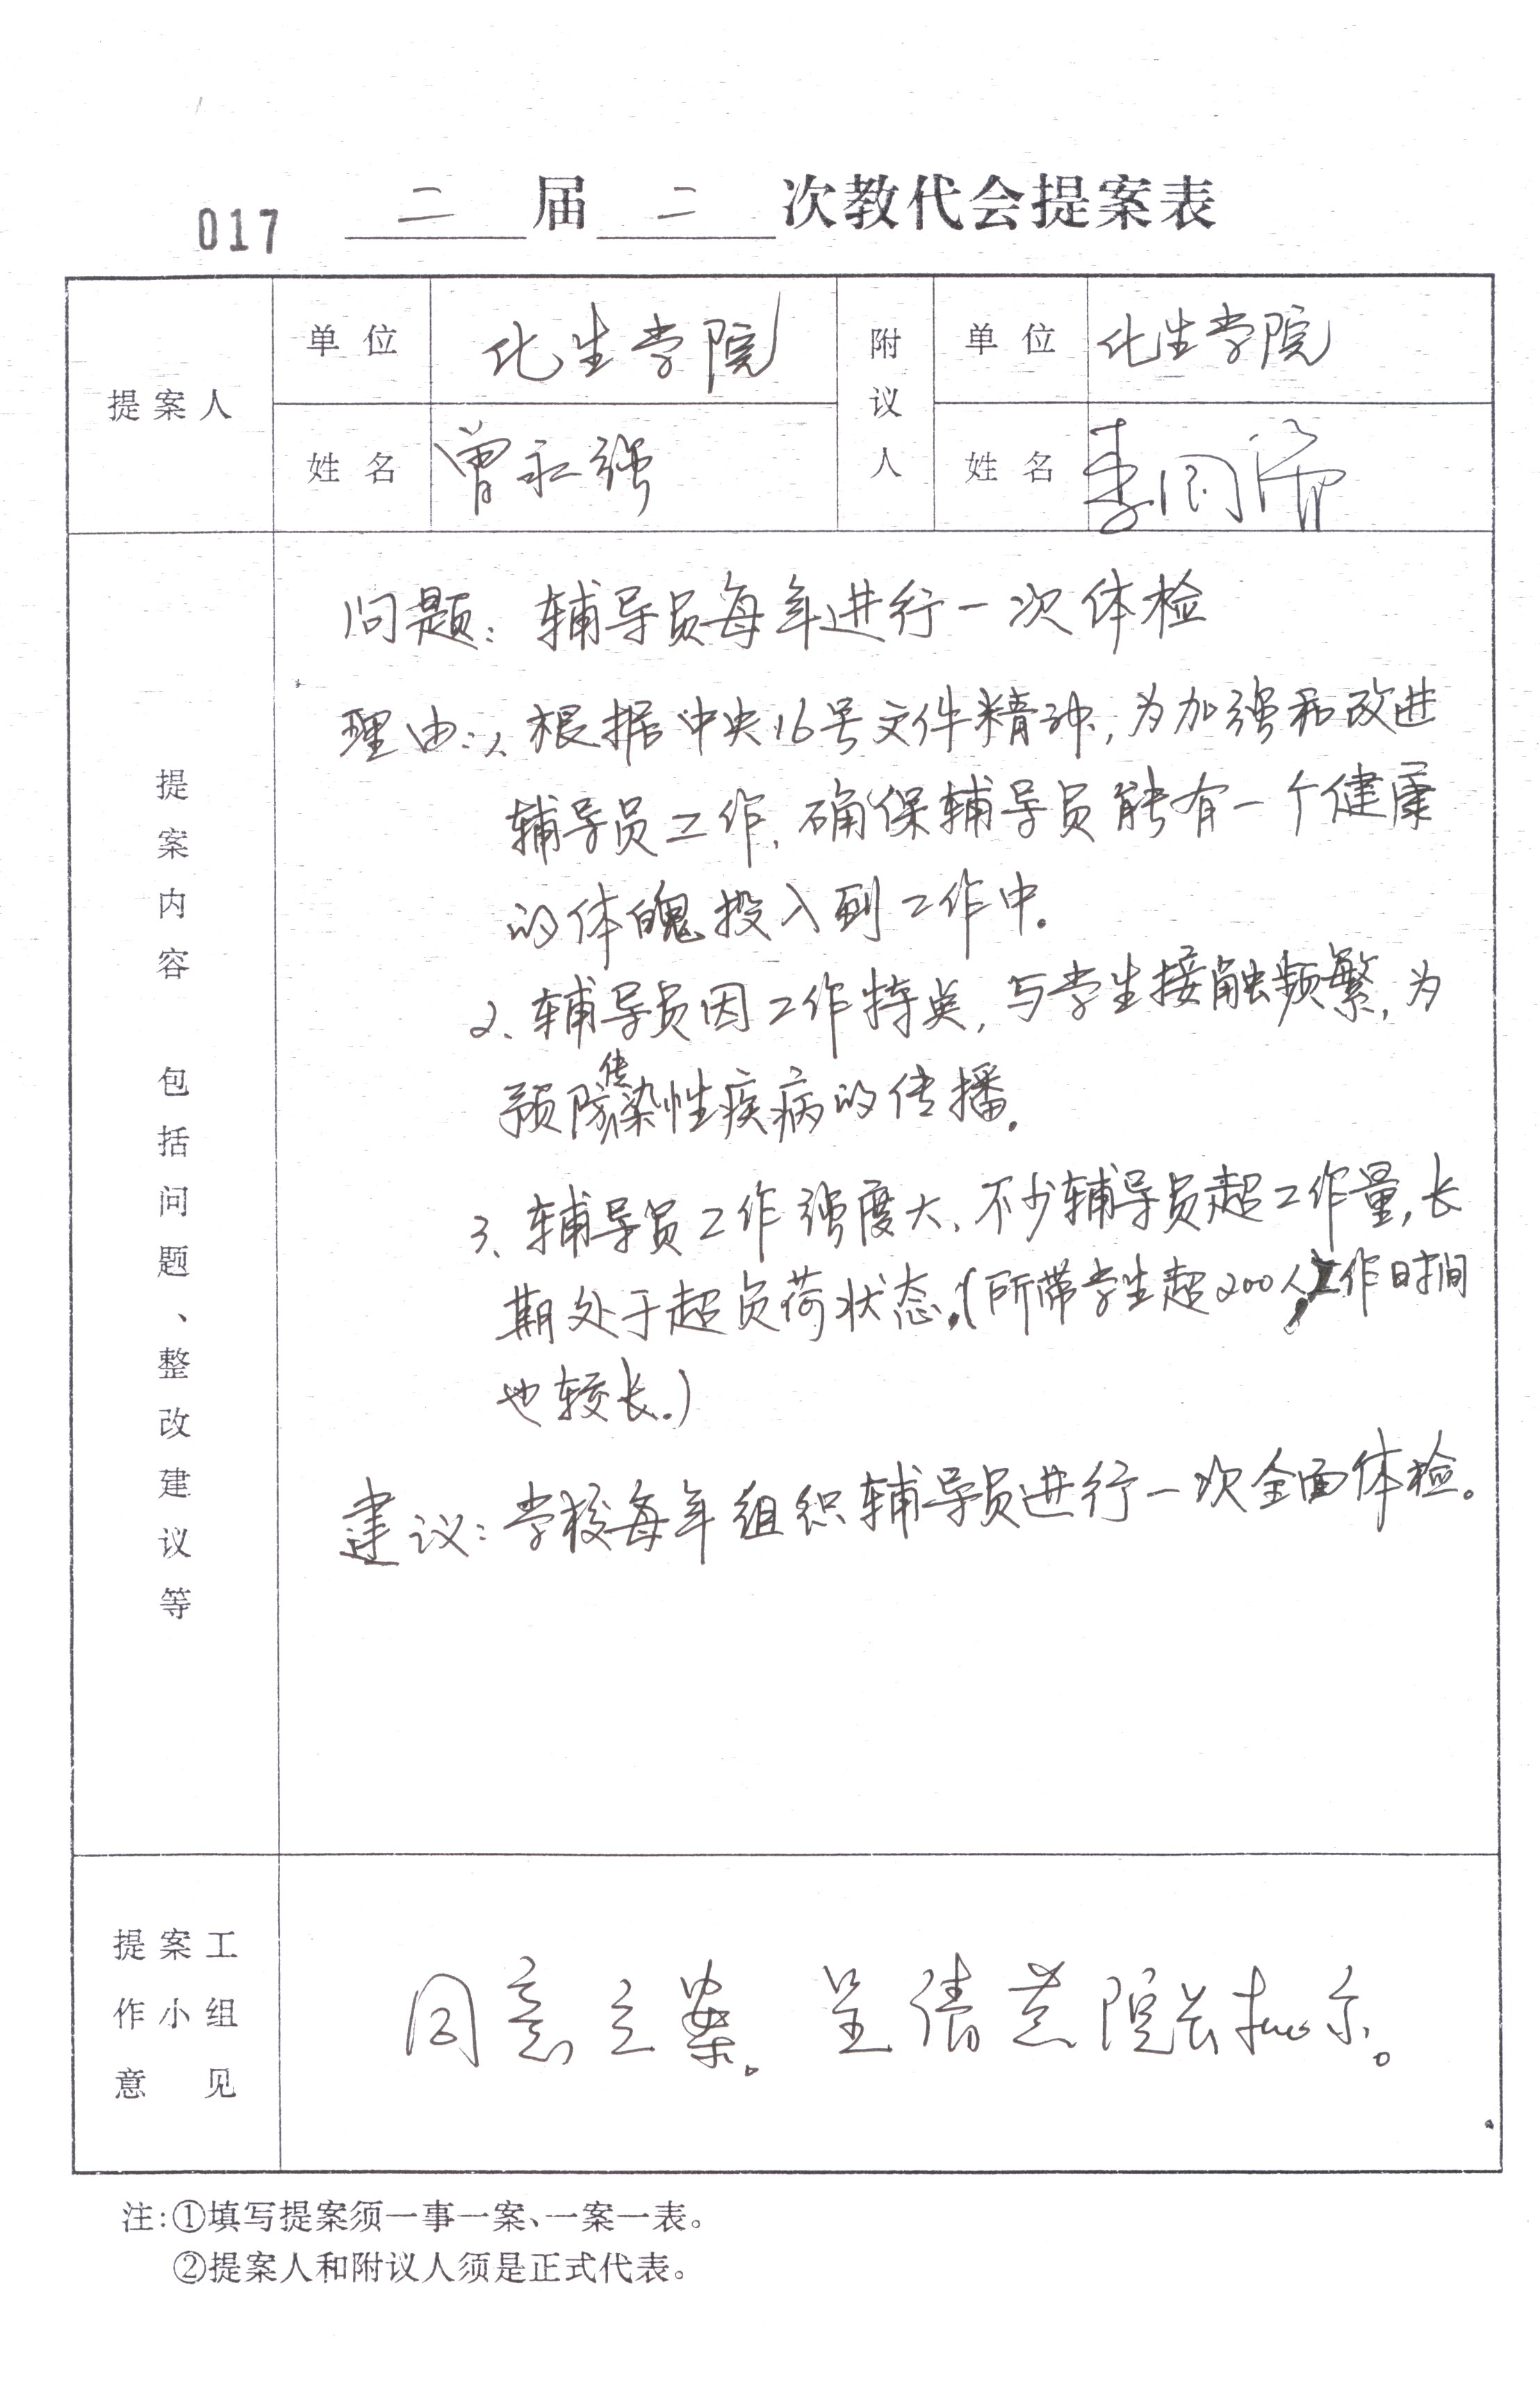 017 二 届 二 次教代会提案表
提案人
单位 化生学院
附议人
单位 化生学院
姓名 曾永强
姓名 李同
提案内容 包括问题、整改建议等
问题：辅导员每年进行一次体检
理由：1、根据中央16号文件精神，为加强和改进
辅导员工作，确保辅导员能有一个健康
的体魄投入到工作中。
2、辅导员因工作特点，与学生接触频繁，为
预防传染性疾病的传播。
3、辅导员工作强度大，不少辅导员超工作量，长
期处于超负荷状态。（所带学生超200人，工作时间
也较长。）
建议：学校每年组织辅导员进行一次全面体检。
提案工
作小组
意 见
同意立案。呈请 院长批示。
注：①填写提案须一事一案、一案一表。
②提案人和附议人须是正式代表。